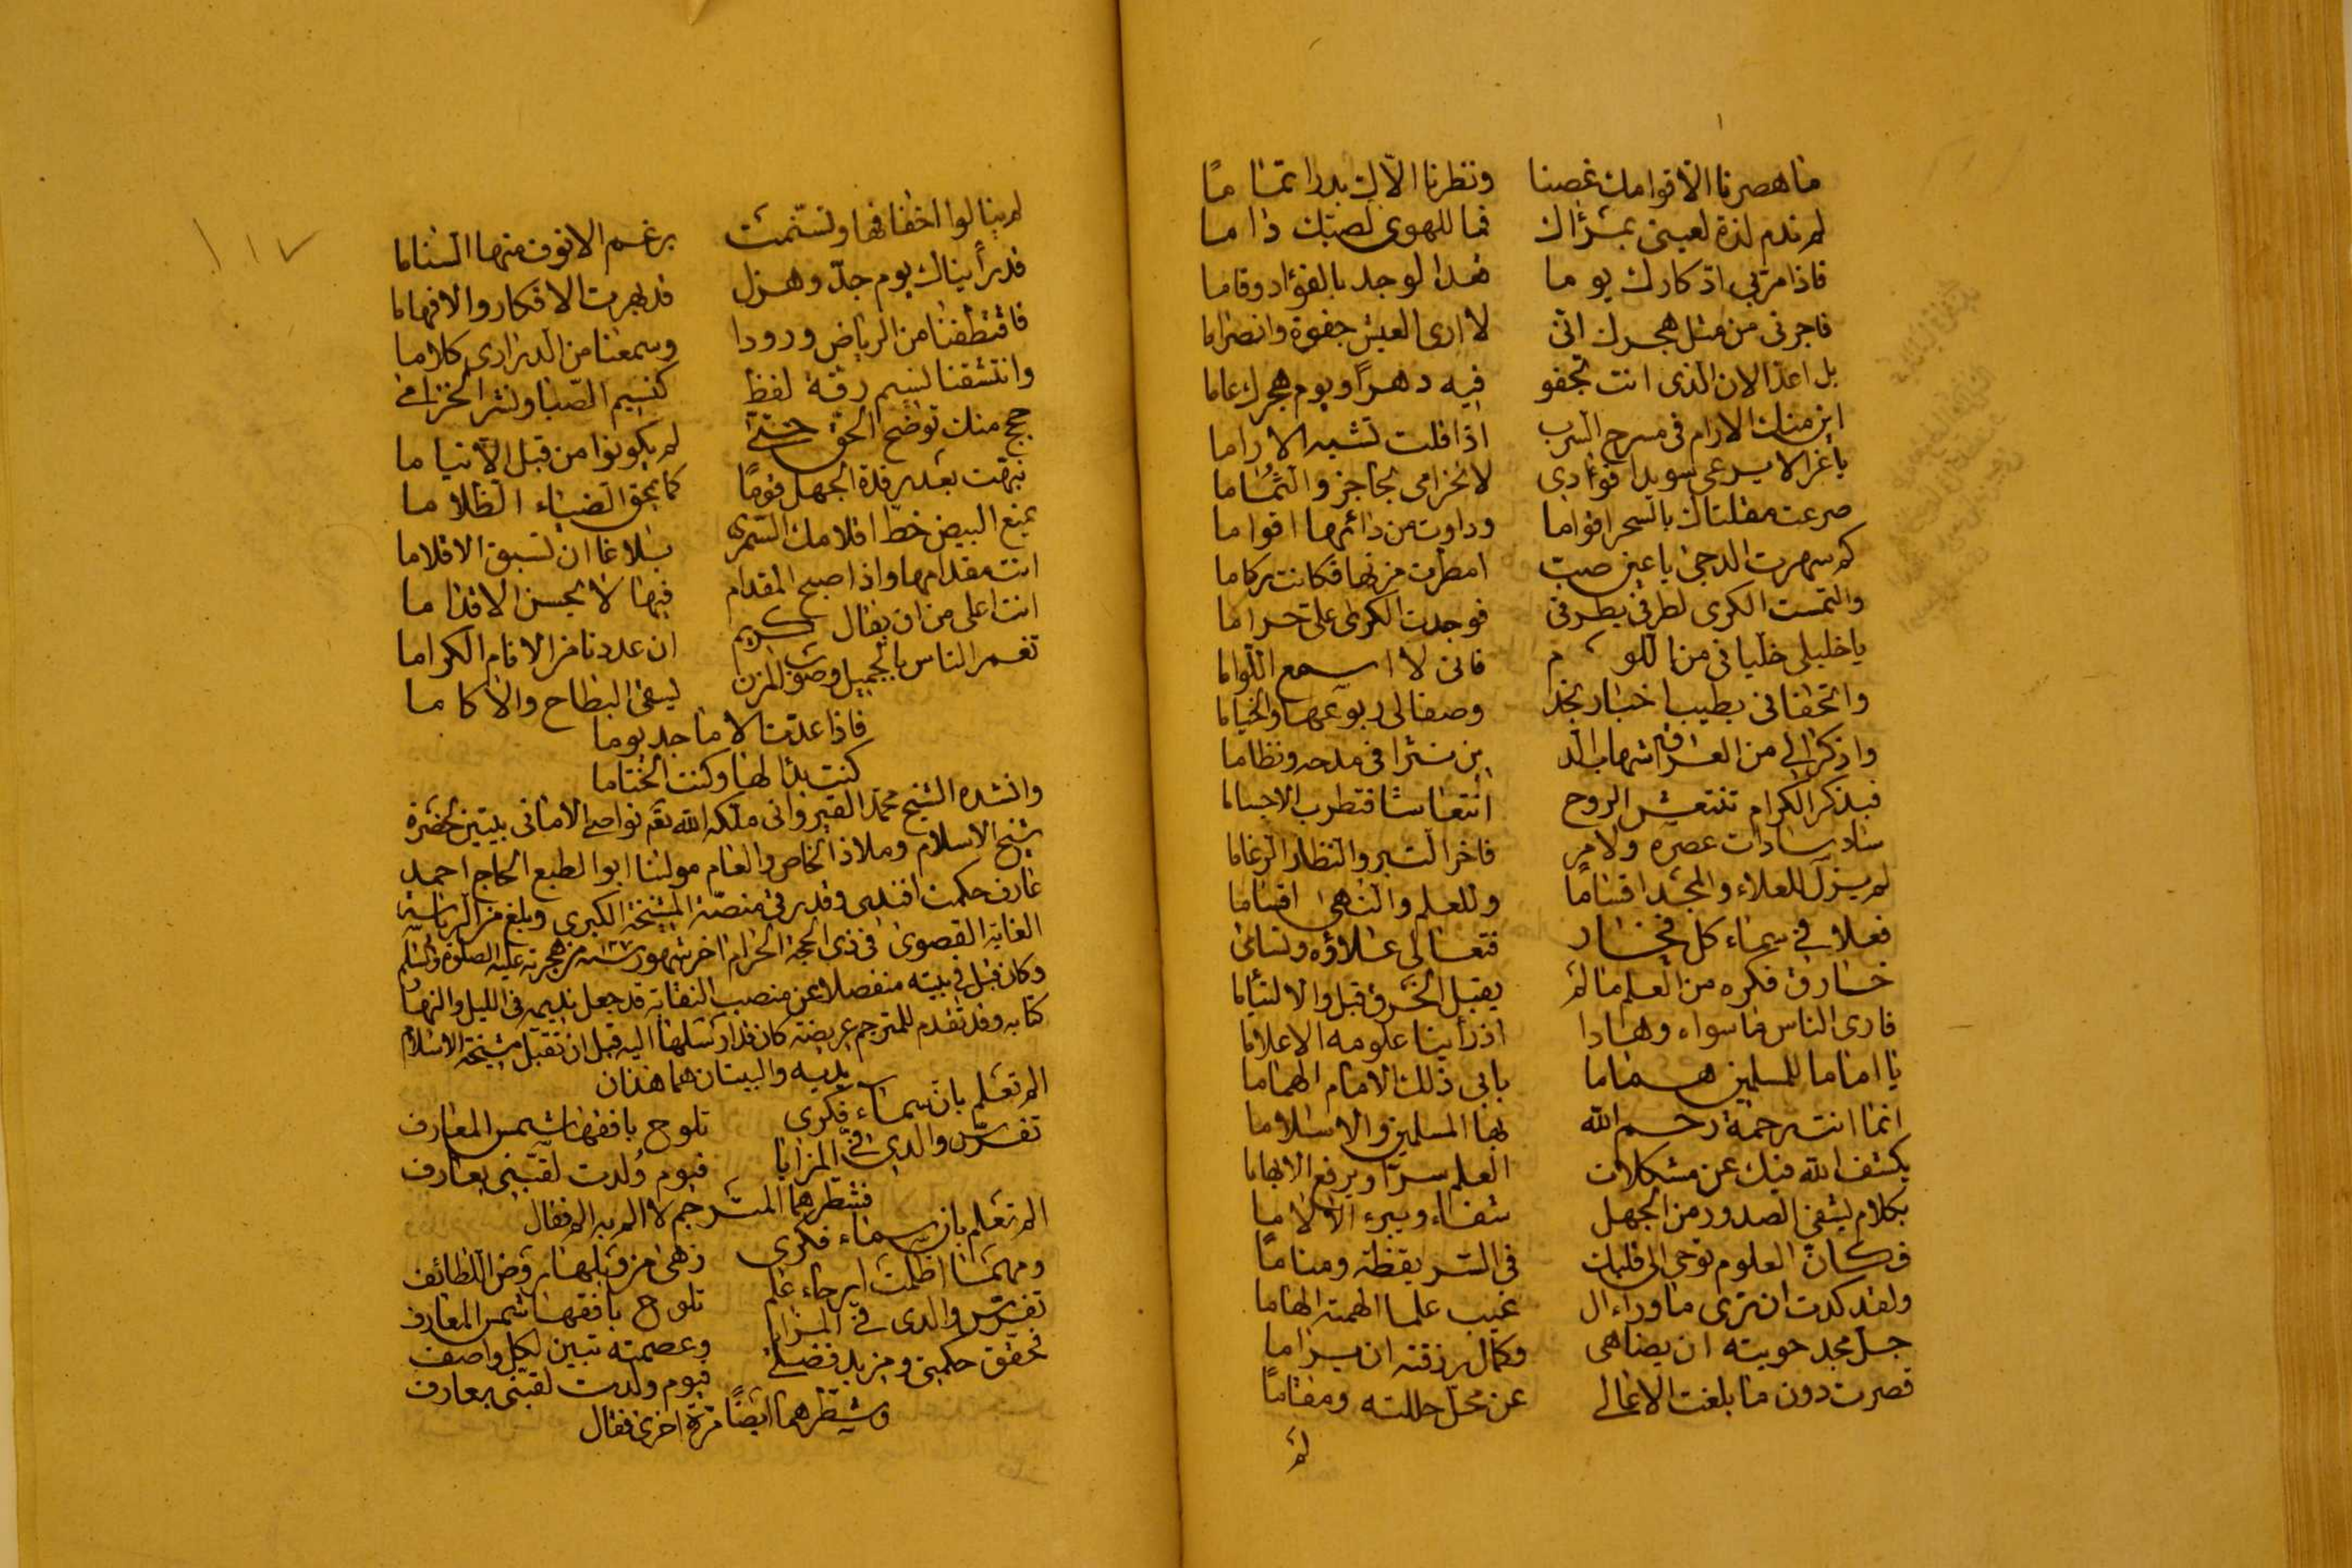 ما هصرنا الا قوامك غصنا ونظرنا الاك بدرا تماما
لم ندم لذة لعيني بمرآك فما للهوى لصبك داما
فاذا مر بي ادّكارك يوما قعد الوجد بالفؤاد وقاما
فاجرني من مثل هجرك اني لا ارى العيش جفوة وانصراما
بل اعد الان الذي انت تجفو فيه دهرًا ويوم هجرك عاما
اين منك الارام في مسرح السرب اذا قلت تشبه الاراما
يا غزالا يرعى سويدا فؤادي لا الخزامى بحاجز والثماما
صرعت مقلتاك بالسحر اقواما وداوت من دائها اقواما
كم سهرت الدجى يا عين صب امطرت مزنها فكانت ركاما
والتمست الكرى لطرفي بطرفي فوجدت الكرى علي حراما
يا خليلي خليا في من اللوم فاني لا اسمع اللواما
واتحفاني بطيب اخبار نجد وصفا لي ربوعها والخياما
واذكرا لي من العراق شهاب الد ين نثرا في مدحه ونظاما
فبذكر الكرام تنتعش الروح انتعاشا فتطرب الاجساما
ساد سادات عصره ولامر فاخر التبر والنظار الرغاما
لم يزل للعلاء والمجد اقساما وللعلم والنهى اقساما
فعلا في سماء كل فخار فتعالى علاؤه وتسامى
خارق فكره من العلم ما لم يقبل الخرق قبل والالتئاما
فارى الناس ما سواه وهادا اذ رأينا علومه الاعلاما
يا اماما للمسلمين هماما بابي ذلك الامام الهماما
انما انت رحمة رحم الله بها المسلمين والاسلاما
يكشف الله فيك عن مشكلات العلم سرّا ويرفع الابهاما
بكلام يشفي الصدور من الجهل شفاء ويبرء الالاما
فكان العلوم توحى الى قلبك في السر يقظة ومناما
ولقد كدت ان ترى ما وراء ال غيب علما الهمته الهاما
جل مجد حويته ان يضاهى وكمال رزقته ان يراما
قصرت دون ما بلغت الاعالي عن محل حللته ومقاما
لم
١١٧
لم ينالوا اخفافها وتسنمت برغم الانوف منها السناما
قد رأيناك يوم جدّ وهزل قد بهرت الافكار والافهاما
فاقتطفنا من الرياض ورودا وسمعنا من الدراري كلاما
وانتشقنا نسيم رقة لفظ كنسيم الصبا ونشر الخزامى
حجج منك توضح الحق حتى لم يكونوا من قبل الا نياما
نبهت بعد رقدة الجهل قومًا كما يمحق الضياء الظلاما
يمنع البيض خط اقلامك السمر بلاغا ان تسبق الاقلاما
انت مقدامها واذا اصبح المقدام فيها لا يحسن الاقداما
انت اعلى من ان يقال كريم ان عددنا من الانام الكراما
تغمر الناس بالجميل وصوب المزن يسقي البطاح والاكاما
فاذا عدّت الاماجد يوما
كنت بدأ لها وكنت الختاما
وانشده الشيخ محمد القيرواني ملكه الله تعم نواصي الاماني بيتين لحضرة
شيخ الاسلام وملاذ الخاص والعام مولانا ابو الطبع الحاج احمد
عارف حكمت افندي وقد رقى منصة المشيخة الكبرى وبلغ من الرياسة
الغاية القصوى في ذي الحجة الحرام اخر شهور سنة من هجرته عليه الصلوة والسلام
وكان قبل في بيته منفصلا عن منصب النقابة قد جعل نديمه في الليل والنهار
كتابه وقد تقدم للمترجم عريضة كان قد ارسلها اليه قبل ان تقبل مشيخة الاسلام
يديه والبيتان هما هذان
الم تعلم بان سماء فكري تلوح بافقها شمس المعارف
تفرّس والدي فيّ المزايا فيوم وُلدت لقبني بعارف
فشطرهما المترجم لا الم به الم فقال
الم تعلم بان سماء فكري زهى من وبلها روض اللطائف
ومهما اظلمت ارجاء علم تلوح بافقها شمس المعارف
تفرّس والدي فيّ المزايا وعصمته تبين لكل واصف
تحقق حكمتي ومزيد فضلي فيوم ولدت لقبني بعارف
وشطرهما ايضًا مرّة اخرى فقال